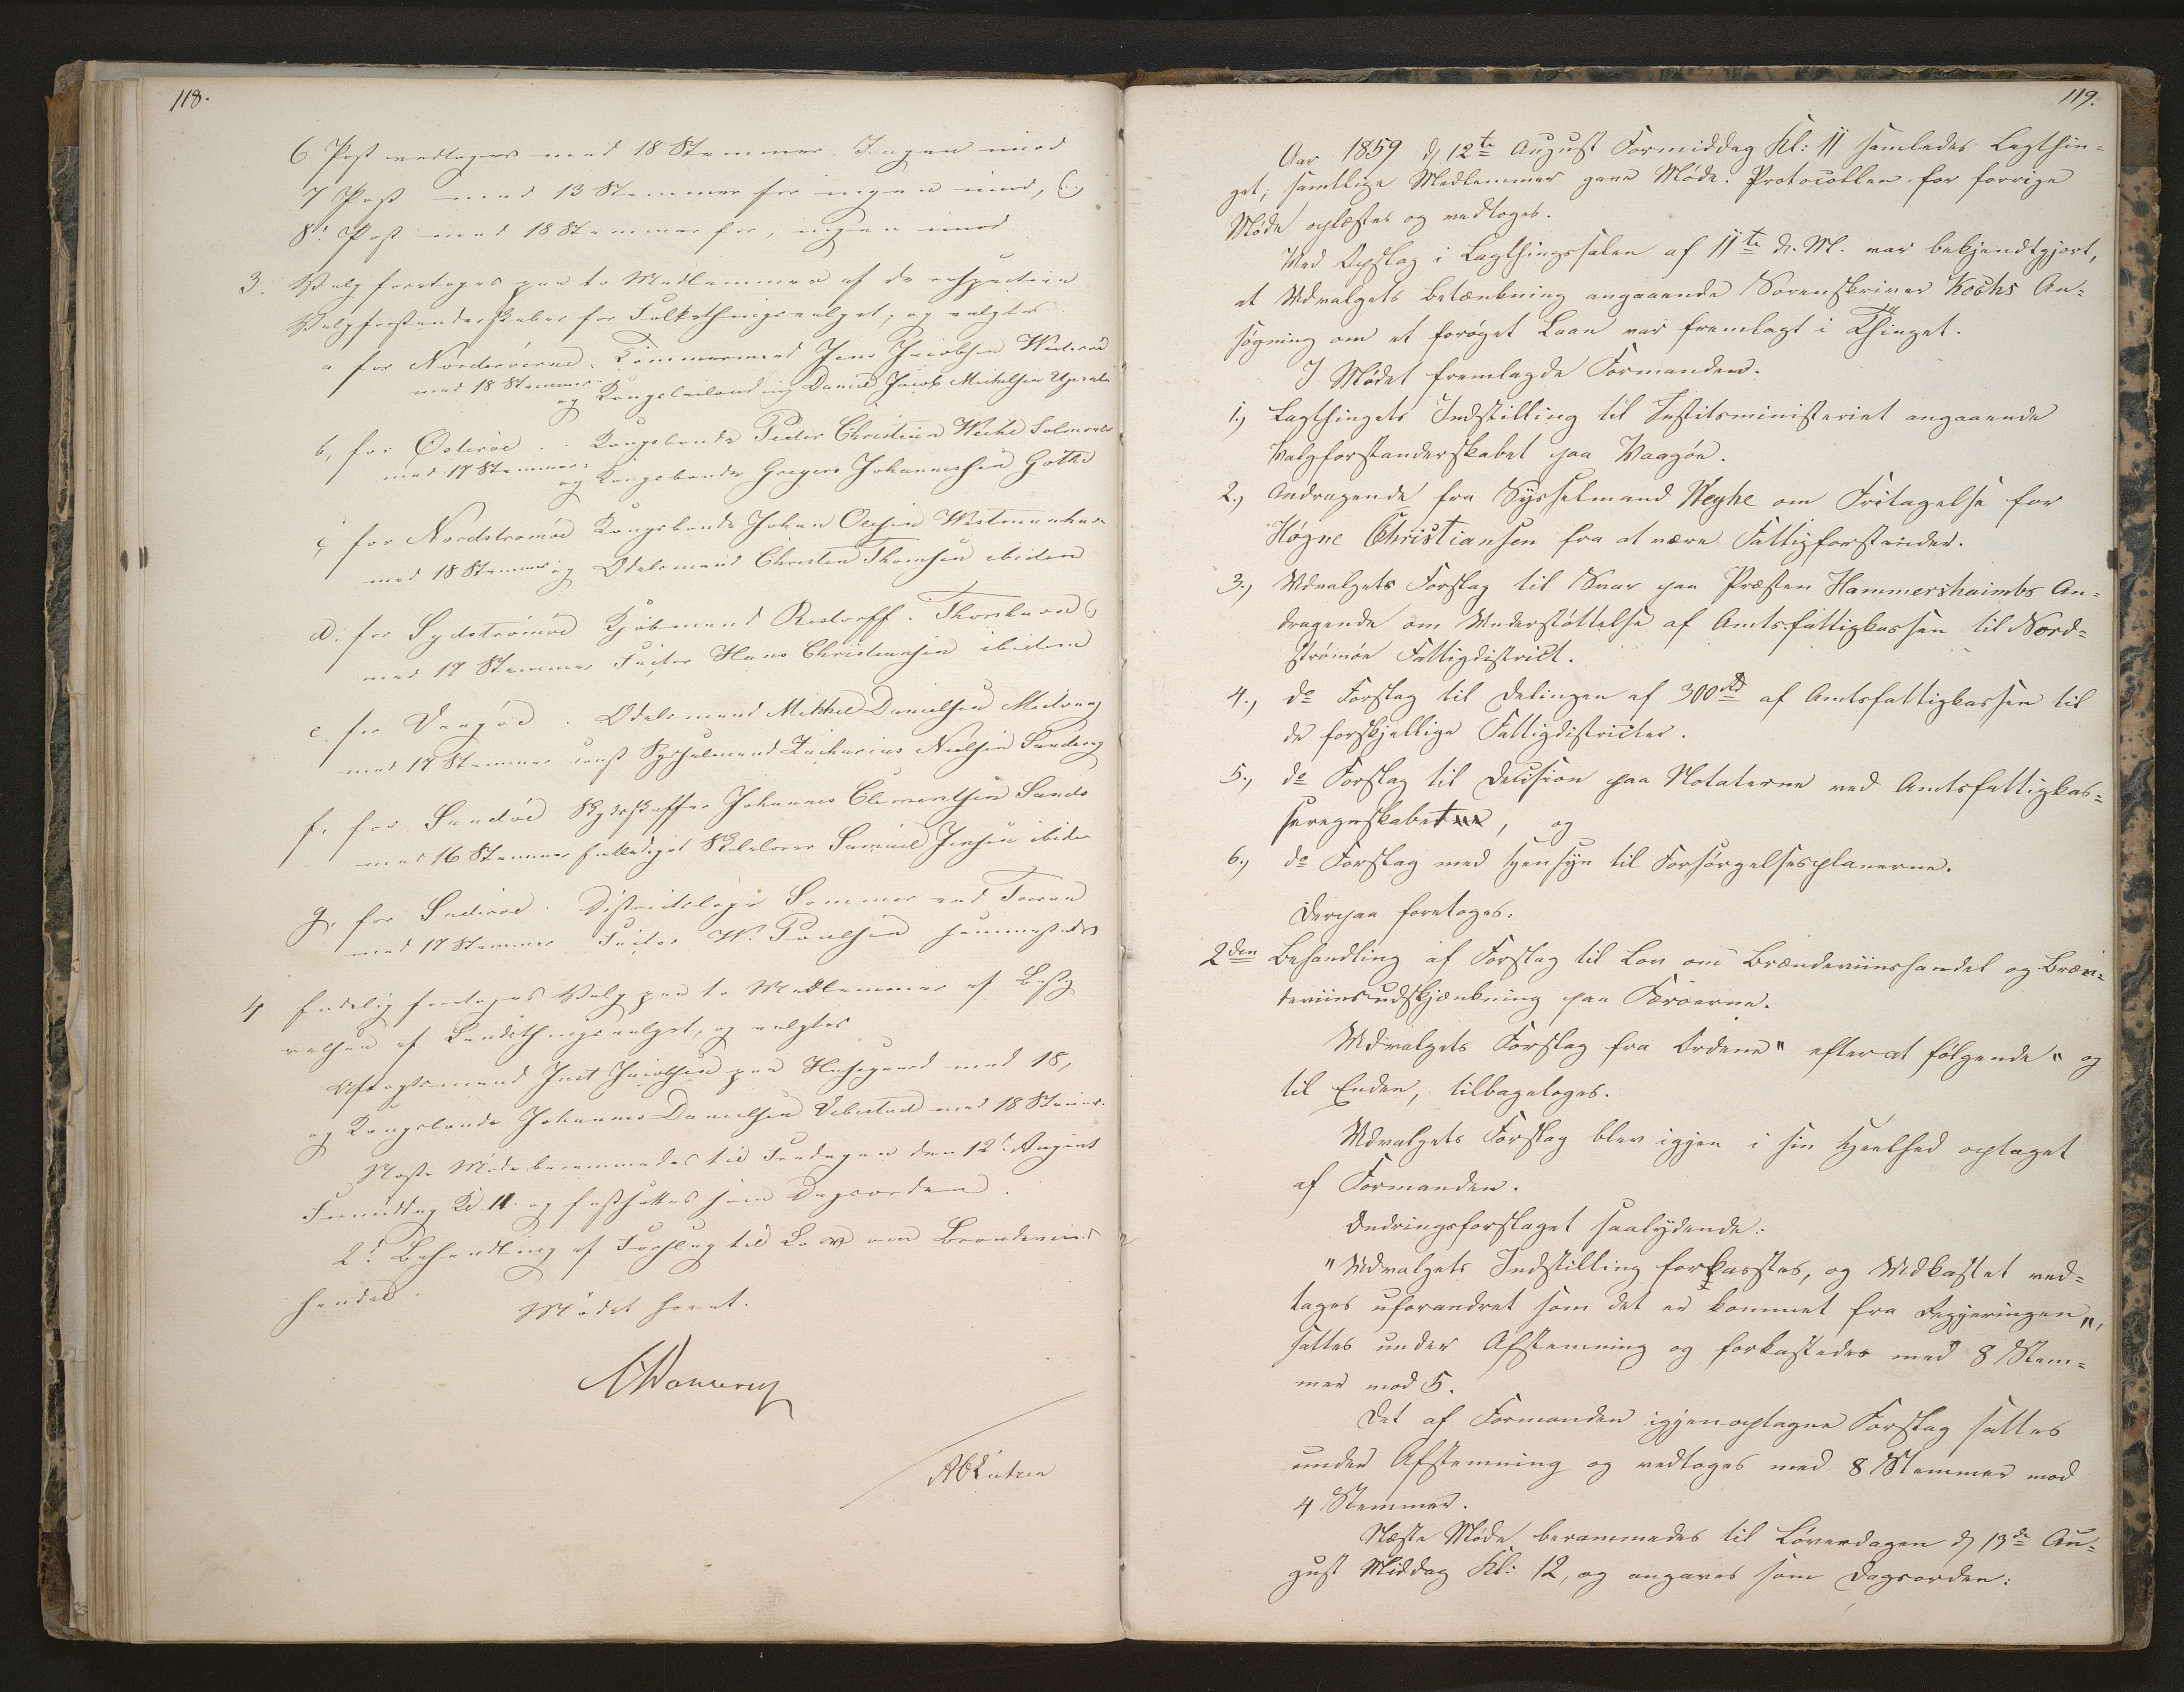 118.
6 Post vedtoges med 18 Stemmer. Ingen imod
7 Post med 13 Stemmer for ingen imod,
8de Post med 18 Stemmer for, ingen imod
3. Valg foretoges paa to Medlemmer af de respective
Valgforstanderskaber for Folkethingsvalget, og valgtes
a for Norderøerne. Tømmermand Jens Jacobsen Widerøe
med 18 Stemmer
og Daniel Jacob Michelsen
b, for Østerøe. Kongsbonde Peder Christian Weihe Solmunde
med 17 Stemmer
og Kongsbonde Gregers Johannessen Gøthe
c, for Nordstrømøe Kongsbonde Johan Olesen Westmanhavn
med 18 Stemmer og Odelsmand Christen Thomsen ibidem
d. for Sydstrømøe Kjøbmand Restorff. Thorshavn
med 17 Stemmer Factor Hans Christiansen ibidem
e. for Vaagøe. Odelsmand Mikkel Danielsen Midvaag
med 17 Stemmer Sysselmand Zacharias Nielsen Sandevaag
f. for Sandøe Skydsskaffer Johannes Clementsen Sands
med 16 Stemmer Skolelærer Samuel Jensen ibidem
g. for Suderøe. Districtslæge Sommer ved Tveraa
med 17 Stemmer Factor W. Poulsen sammesteds
4 Endelig foretoges Valg paa to Medlemmer af Besty
relsen af Landsthingsvalget, og valgtes
Aftægtsmand Just Jacobsen paa Husegaard med 18,
og Kongsbonde Johannes Danielsen Velbestad med 18 Stemmer.
Næste Møde berammedes til Fredagen den 12te August
Formiddag Kl. 11. og fastsattes som Dagsorden.
2d Behandling af Forslag til Lov om Brændeviins
handel.
Mødet hævet.
CDahlerup
119.
Aar 1859 d. 12te August Formiddag Kl: 11 samledes Lagthin=
get; samtlige Medlemmer gave Møde. Protocollen for forrige
Møde oplæstes og vedtoges.
Ved Opslag i Lagthingssalen af 11te d. M. var bekjendtgjort,
at Udvalgets Betænkning angaaende Sorenskriver Kochs An=
søgning om et forøget Laan var fremlagt i Thinget.
I Mødet fremlagde Formanden.
1., Lagthingets Indstilling til Justitsministeriet angaaende
Valgforstanderskabet paa Waagøe.
2., Andragende fra Sysselmand Weyhe om Fritagelse for
Høgne Christiansen fra at være Fattigforstander.
3., Udvalgets Forslag til Svar paa Præsten Hammershaimbs An=
dragende om Understøttelse af Amtsfattigkassen til Nord=
strømøe Fattigdistrict.
4., do Forslag til Delingen af 300 rd af Amtsfattigkassen til
de forskjellige Fattigdistricter.
5., do Forslag til Decision paa Notaterne ved Amtsfattigkas=
seregnskabet, og
6., do Forslag med Hensyn til Forsørgelsesplanerne.
Derpaa foretoges.
2den Behandling af Forslag til Lov om Brændeviinshandel og Bræn=
deviinsudskjænkning paa Færøerne.
Udvalgets Forslag fra Ordene "efter at følgende" og
til Enden, tilbagetoges.
Udvalgets Forslag blev igjen i sin Heelhed optaget
af Formanden.
Ændringsforslaget saalydende:
"Udvalgets Indstilling forkastes, og Udkastet ved=
tages uforandret som det er kommet fra Regjeringen",
sattes under Afstemning og forkastedes med 8 Stem=
mer mod 5.
Det af Formanden igjenoptagne Forslag sattes
under Afstemning og vedtoges med 8 Stemmer mod
4 Stemmer.
Næste Møde berammedes til Løverdagen d. 13de Au=
gust Middag Kl: 12, og angaves som Dagsorden: